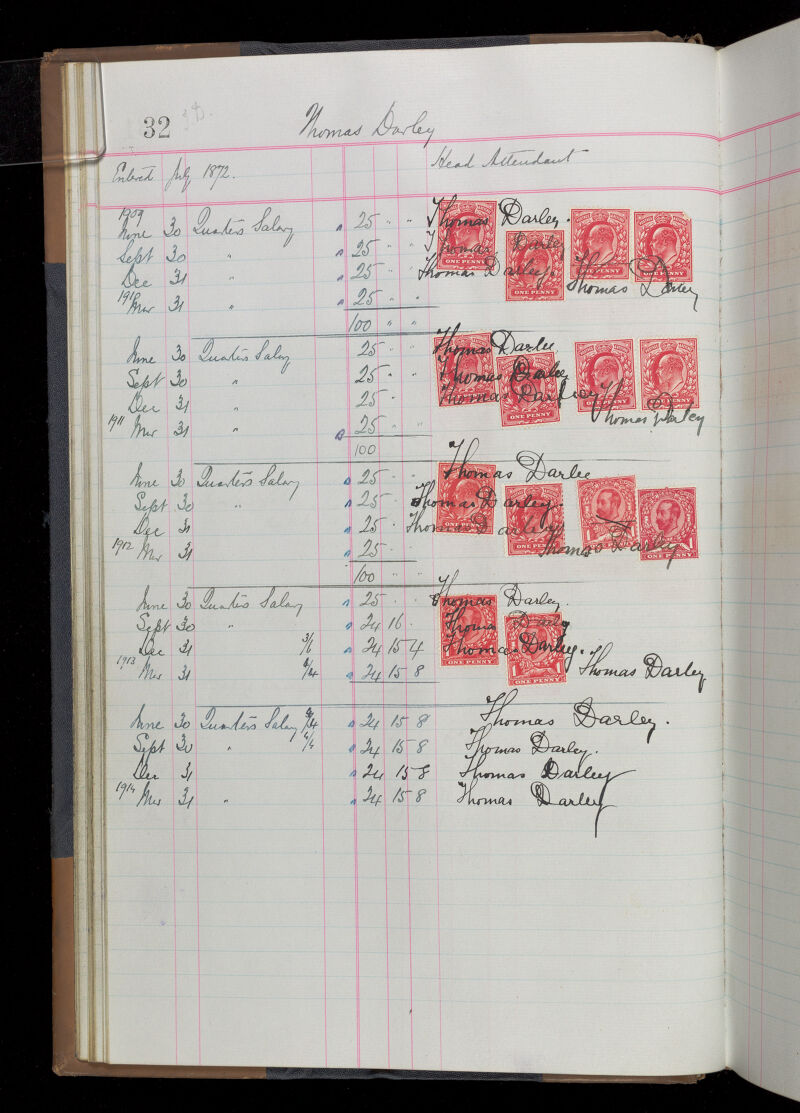 32
Thomas Darley
Head Attendant
Entered July 1872.
1909
June 30 Quarters Salary " 25 " " Thomas Darley.
Sept 30 " " 25 " " Thomas Darley
Dec 31 " " 25 " " Thomas Darley.
1910 Mar 31 " 25 " " Thomas Darley
100 " "
June 30 Quarters Salary 25 " Thomas Darley
Sept 30 " 25 " " Thomas Darley
Dec 31 " 25 " Thomas Darley
1911 Mar 31 " " 25 " " Thomas Darley
100
June 30 Quarters Salary " 25 " Thomas Darley
Sept 30 " " 25 " " Thomas Darley.
Dec 31 " 25 " " Thomas Darley
1912 Mar 31 " 25 " " Thomas Darley
100 " "
June 30 Quarters Salary " 25 " " Thomas Darley.
Sept 30 " " 24 16 " Thomas Darley
Dec 31 3/6 " 24 15 4 Thomas Darley.
1913 Mar 31 4/4 " 24 15 8 Thomas Darley
June 30 Quarters Salary 4/4 " 24 15 8 Thomas Darley.
Sept 30 " 4/4 " 24 15 8 Thomas Darley.
Dec 31 " 24 15 8 Thomas Darley
1914 Mar 31 " " 24 15 8 Thomas Darley
ONE PENNY
ONE PENNY
ONE PENNY
ONE PENNY
ONE PENNY
ONE PENNY
ONE PENNY
ONE PENNY
ONE PENNY
ONE PENNY
ONE PENNY
ONE PENNY
ONE PENNY
ONE PENNY